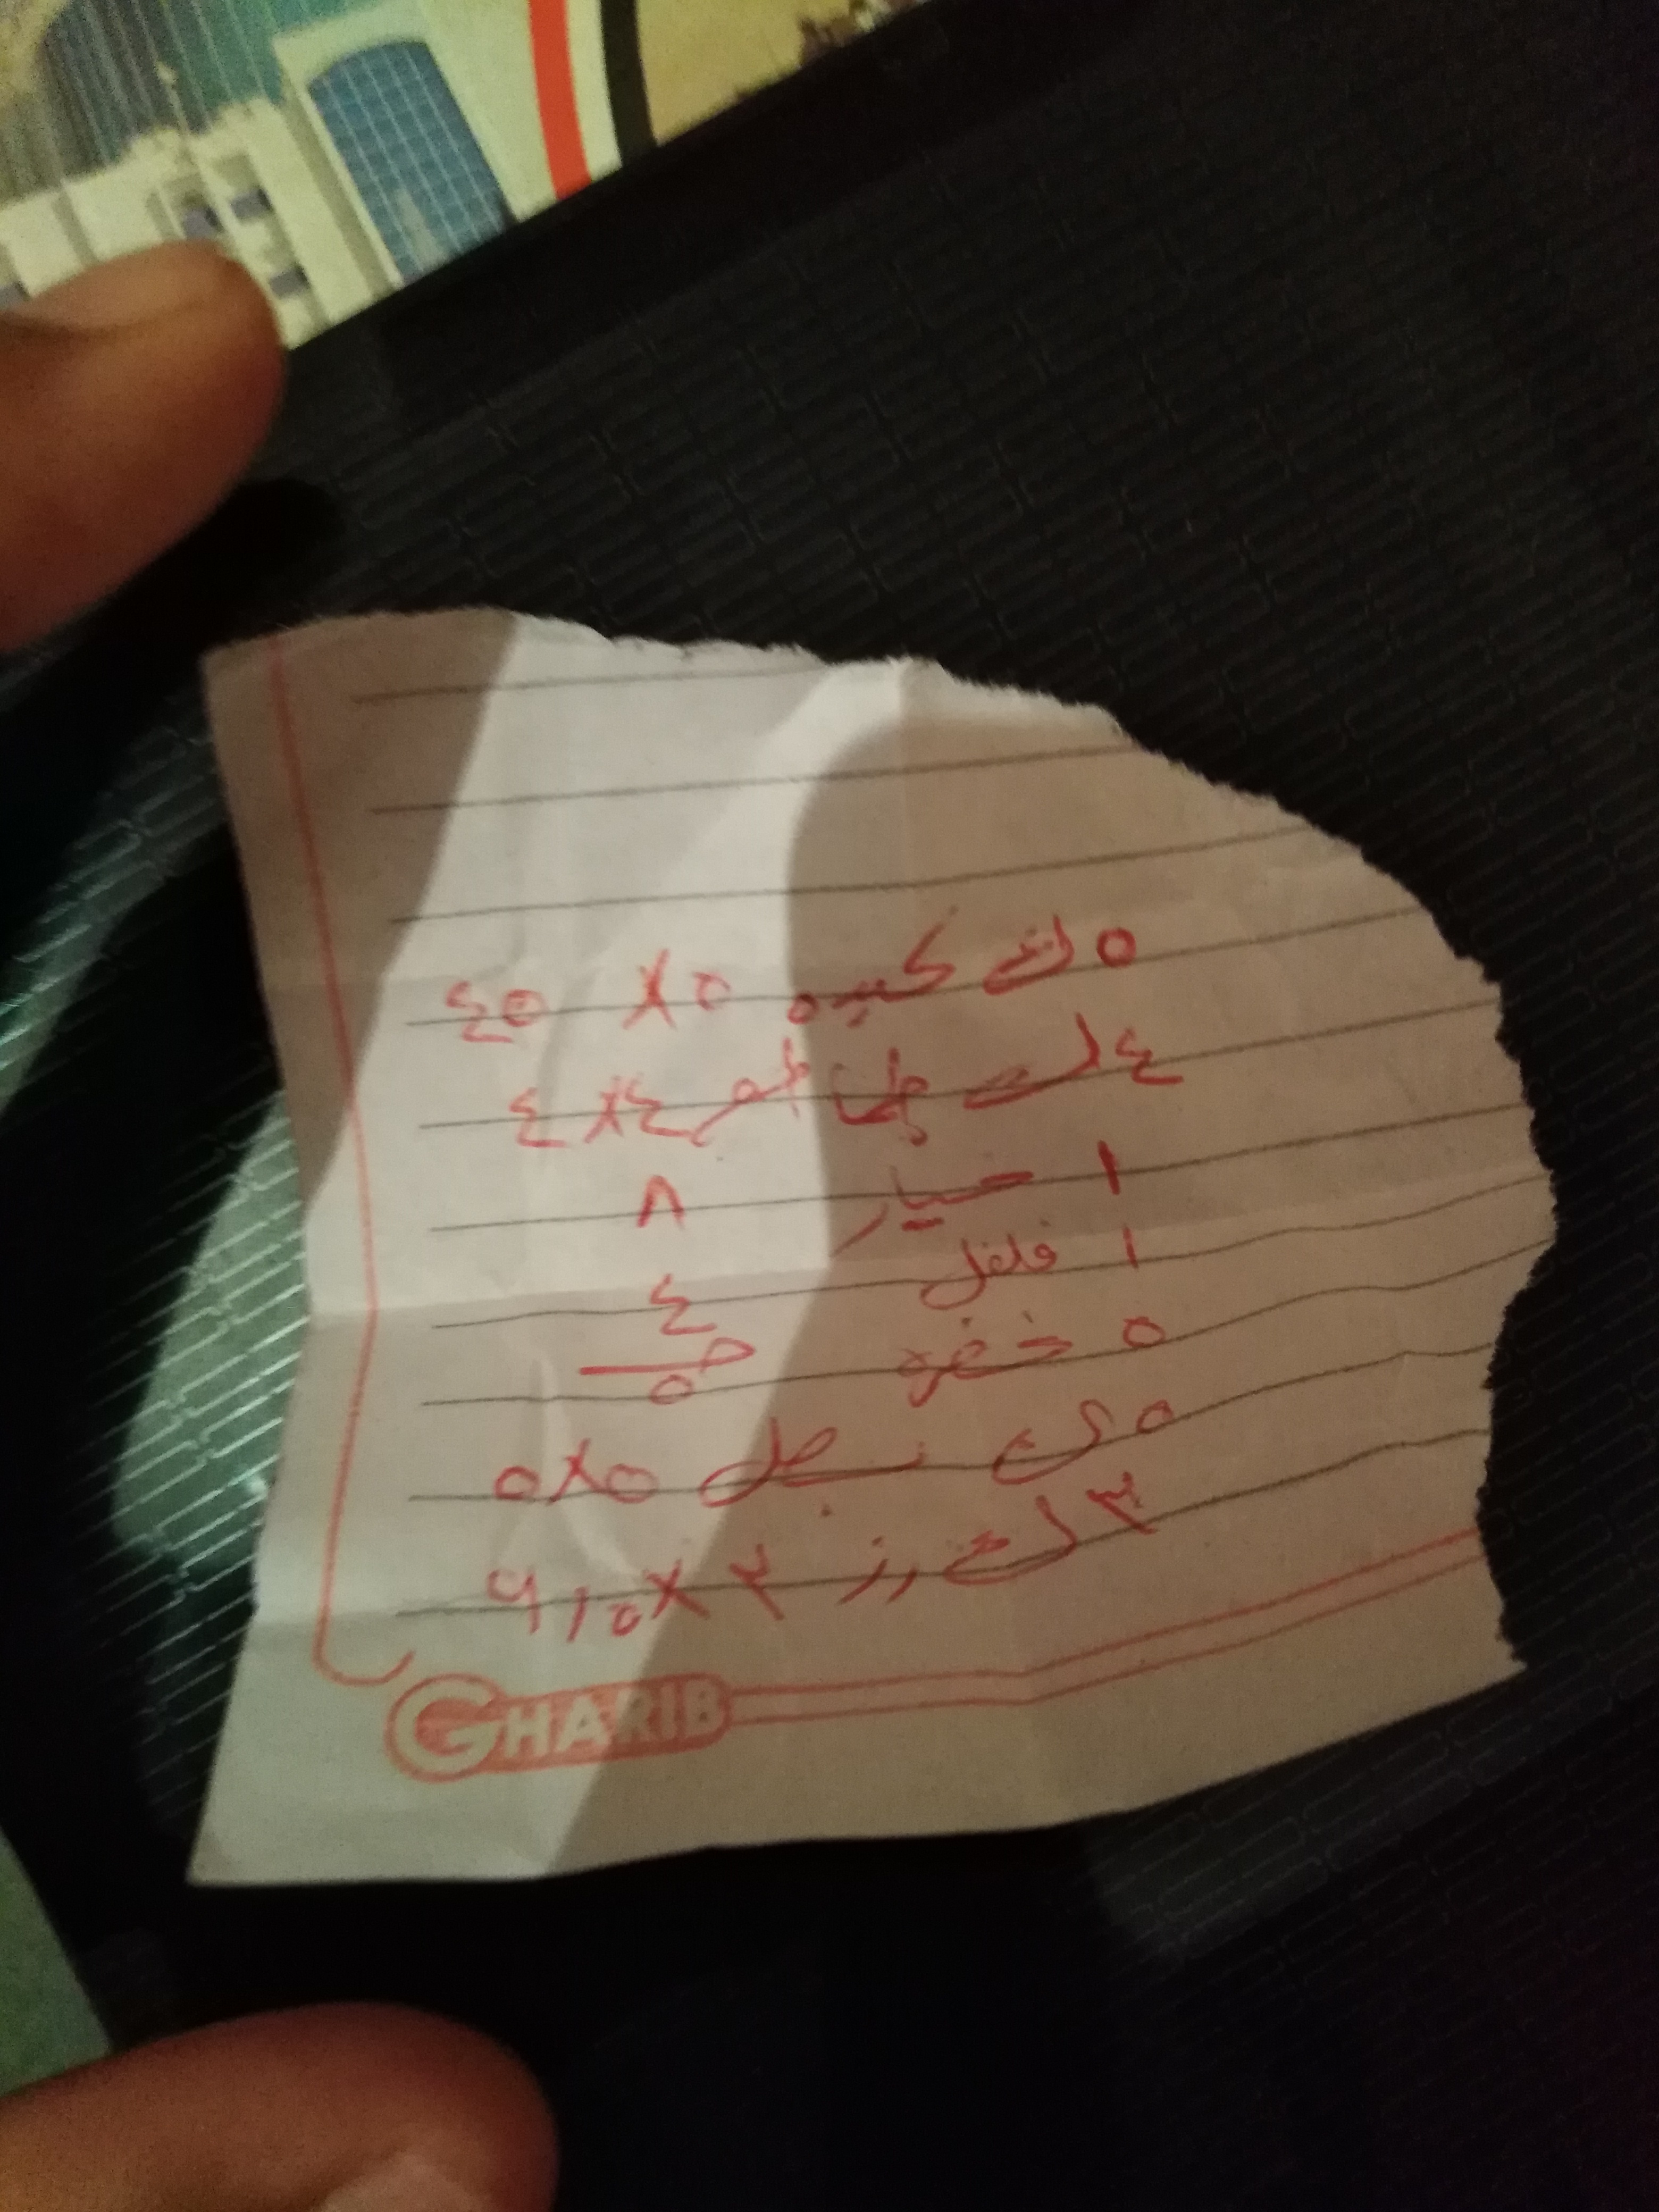 ٥ ك كبده ٥ × ٤٥
٤ ك طماطم ٤ × ٤
١ خيار ٨
١ فلفل ٤
٥ خضره ٥
٥ ك بصل ٥ × ٥
٣ ك رز ٣ × ٩,٥
GHARIB